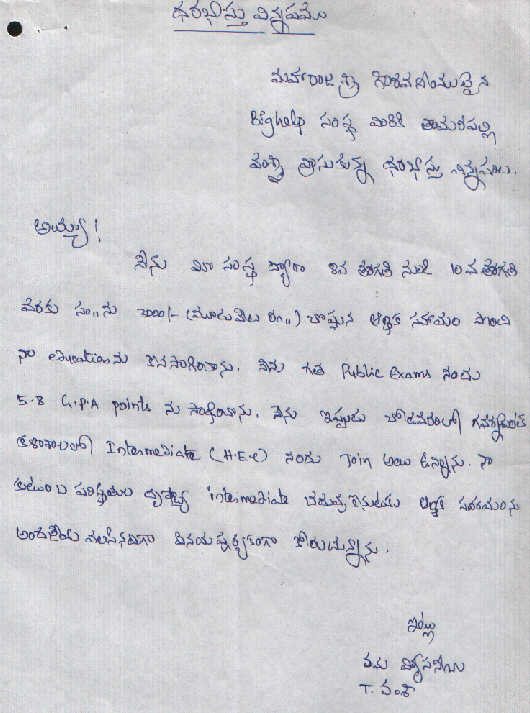 దరఖాస్తు విన్నపము
మహారాజశ్రీ గౌరవనీయులైన
Bighelp సంస్థ వారికి తామరపల్లి
వంశీ వ్రాసుకున్న దరఖాస్తు విన్నపము.
అయ్యా!
నేను మీ సంస్థ ద్వారా 8వ తరగతి నుండి 10వ తరగతి
వరకు సం,,ను 3000/- (మూడువేల రూ,,) చొప్పున ఆర్థిక సహాయం పొంది
నా education ను కొనసాగించాను. నేను గత Public Exams నందు
5.8 G.P.A points ను సాధించాను. నేను ఇప్పుడు గవర్నమెంట్
కళాశాలలో Intermediate (H.E.C) నందు Join అయి ఉన్నాను. నా
కుటుంబ పరిస్థితుల దృష్ట్యా intermediate చదువు కొనుటకు ఆర్థిక సహాయంను
అందజేయ వలసినదిగా వినయ పూర్వకంగా కోరుచున్నాను.
ఇట్లు
తమ
T. వంశీ